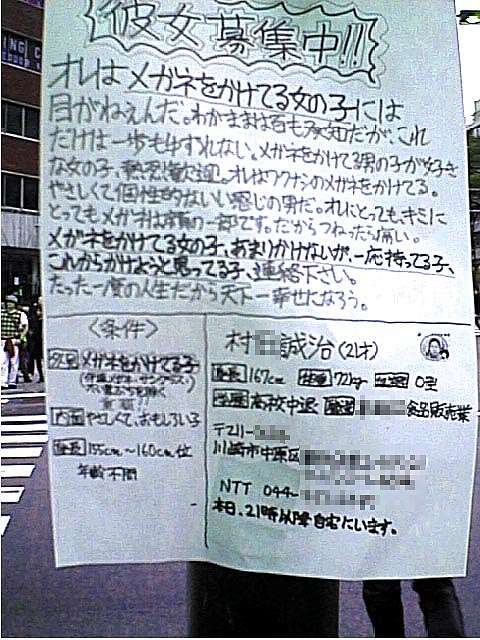 彼女募集中!!!
オレはメガネをかけてる女の子には
目がねぇんだ。わがままは百も承知だが、これ
だけは一歩もゆずれない。メガネをかけてる男の子が好き
な女の子、熱烈歓迎。オレはワクナシのメガネをかけてる。
やさしくて個性的ないい感じの男だ。オレにとっても、キミに
とってもメガネは顔の一部です。だからつねったら痛い。
メガネをかけてる女の子、あまりかけないが、一応持ってる子、
これからかけようと思ってる子、連絡下さい。
たった一度の人生だから天下一幸せになろう。
〈条件〉
外見 メガネをかけてる子
内面 やさしくて、おもしろい子
身長 155cm~160cm位
年齢不問
村 誠治(21才)
身長 167cm 体重 72kg 0型
学歴 高校中退 食品販売業
〒211-
川崎市中原区
NTT 044-
本日、21時以降自宅にいます。